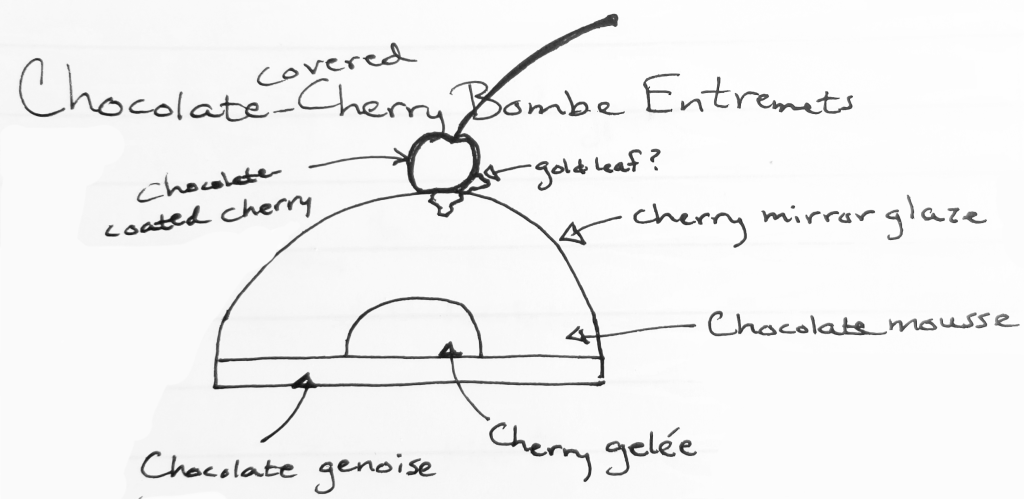 covered
Chocolate-Cherry Bombe Entremets
chocolate
coated cherry
gold leaf?
cherry mirror glaze
Chocolate mousse
Cherry gelée
Chocolate genoise